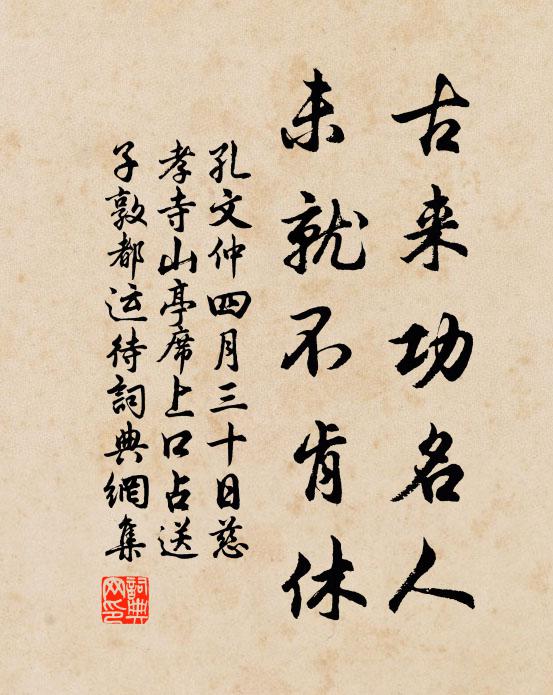 古来功名人
未就不肯休
孔文仲四月三十日慈
孝寺山亭席上口占送
子敦都运待詞典網集
詞典
网印